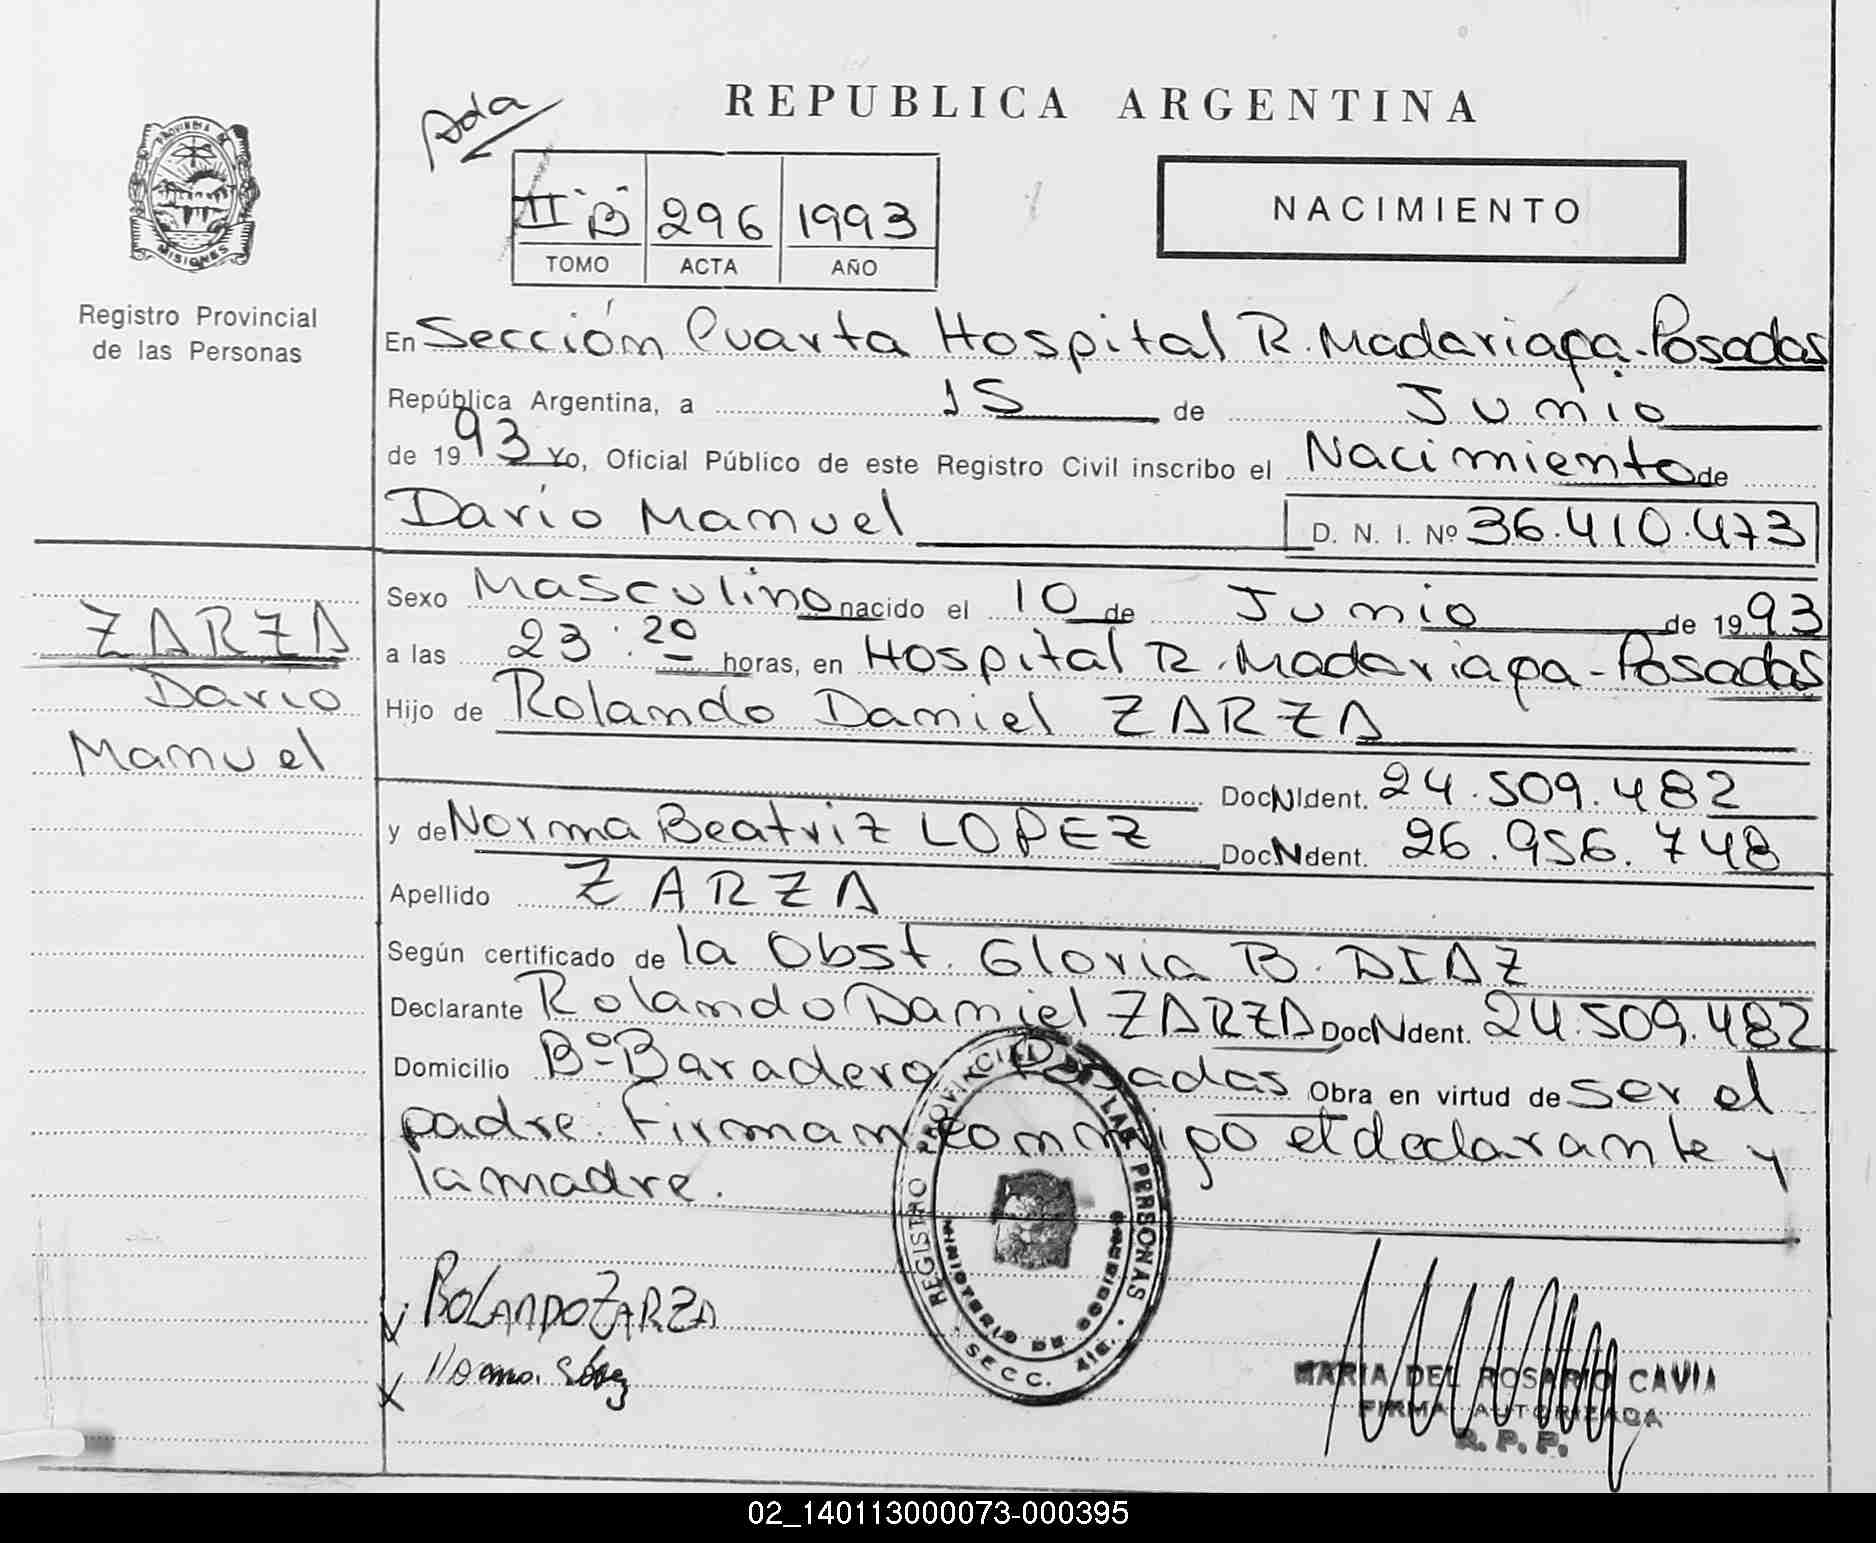 REPUBLICA ARGENTINA
Ada
PROVINCIA DE
MISIONES
Registro Provincial
de las Personas
II "B" 296 1993
TOMO ACTA AÑO
NACIMIENTO
En Sección Cuarta Hospital R. Madariaga-Posadas
República Argentina, a 15 de Junio
de 1993 Yo, Oficial Público de este Registro Civil inscribo el Nacimiento de
Dario Manuel D. N. I. Nº 36.410.473
ZARZA
Dario
Manuel
Sexo Masculino nacido el 10 de Junio de 1993
a las 23:20 horas, en Hospital R. Madariaga-Posadas
Hijo de Rolando Daniel ZARZA
Doc N Ident. 24.509.482
y de Norma Beatriz LOPEZ Doc N dent. 26.956.748
Apellido ZARZA
Según certificado de la Obst. Gloria B. DIAZ
Declarante Rolando Daniel ZARZA Doc N dent. 24.509.482
Domicilio Bº Baradero Posadas Obra en virtud de ser el
padre. Firman conmigo el declarante y
la madre.
REGISTRO PROVINCIAL DE LAS PERSONAS
MINISTERIO DE GOBIERNO
SECC. 4ta.
x ROLANDO ZARZA
x Norma López
MARIA DEL ROSARIO CAVIA
FIRMA AUTORIZADA
R. P. P.
02_140113000073-000395